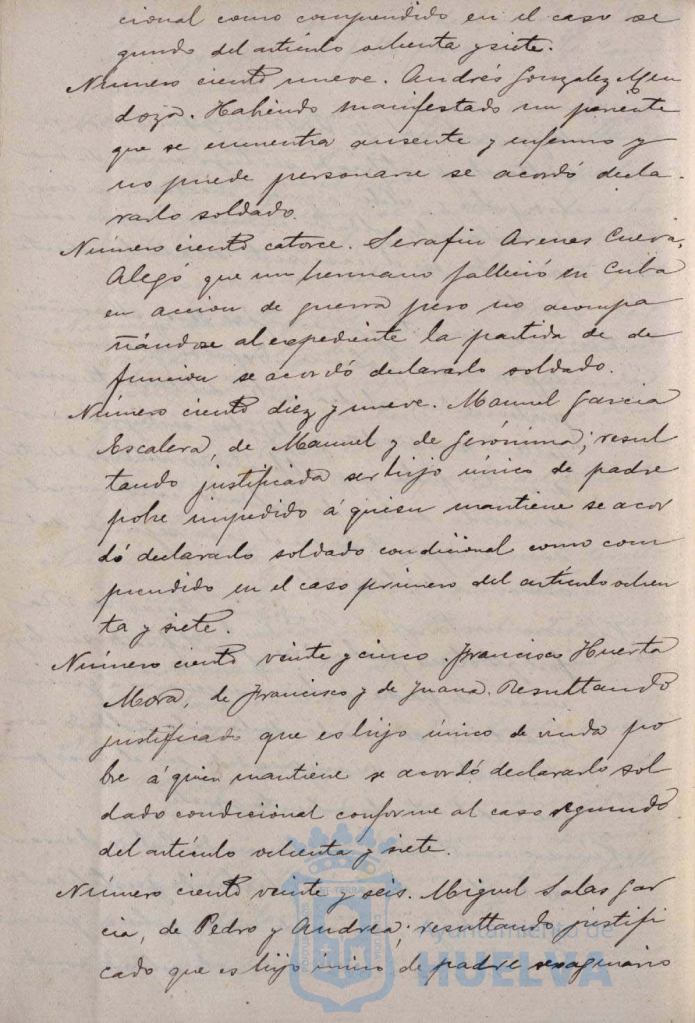 cional como comprendido en el caso se
gundo del artículo ochenta y siete.
Número ciento nueve. Andrés Gonzalez Men
doza. Habiendo manifestado un pariente
que se encuentra ausente y enfermo y
no puede personarse se acordó decla-
rarlo soldado.
Número ciento catorce. Serafin Arenas Cueva,
Alegó que un hermano falleció en Cuba
en accion de guerra pero no acompa
ñándose al expediente la partida de de
funcion se acordó declararlo soldado.
Número ciento diez y nueve. Manuel Garcia
Escalera, de Manuel y de Gerónima; resul
tando justificada ser hijo único de padre
pobre impedido á quien mantiene se acor
dó declararlo soldado condicional como com
prendido en el caso primero del artículo ochen
ta y siete.
Número ciento veinte y cinco. Francisco Huerta
Mora, de Francisco y de Juana. Resultando
justificado que es hijo único de viuda po
bre á quien mantiene se acordó declararlo sol
dado condicional conforme al caso segundo
del artículo ochenta y siete.
Número ciento veinte y seis. Miguel Salas Gar
cia, de Pedro y Andrea; resultando justifi
cado que es hijo único de padre sexagenario
Ayuntamiento de
HUELVA